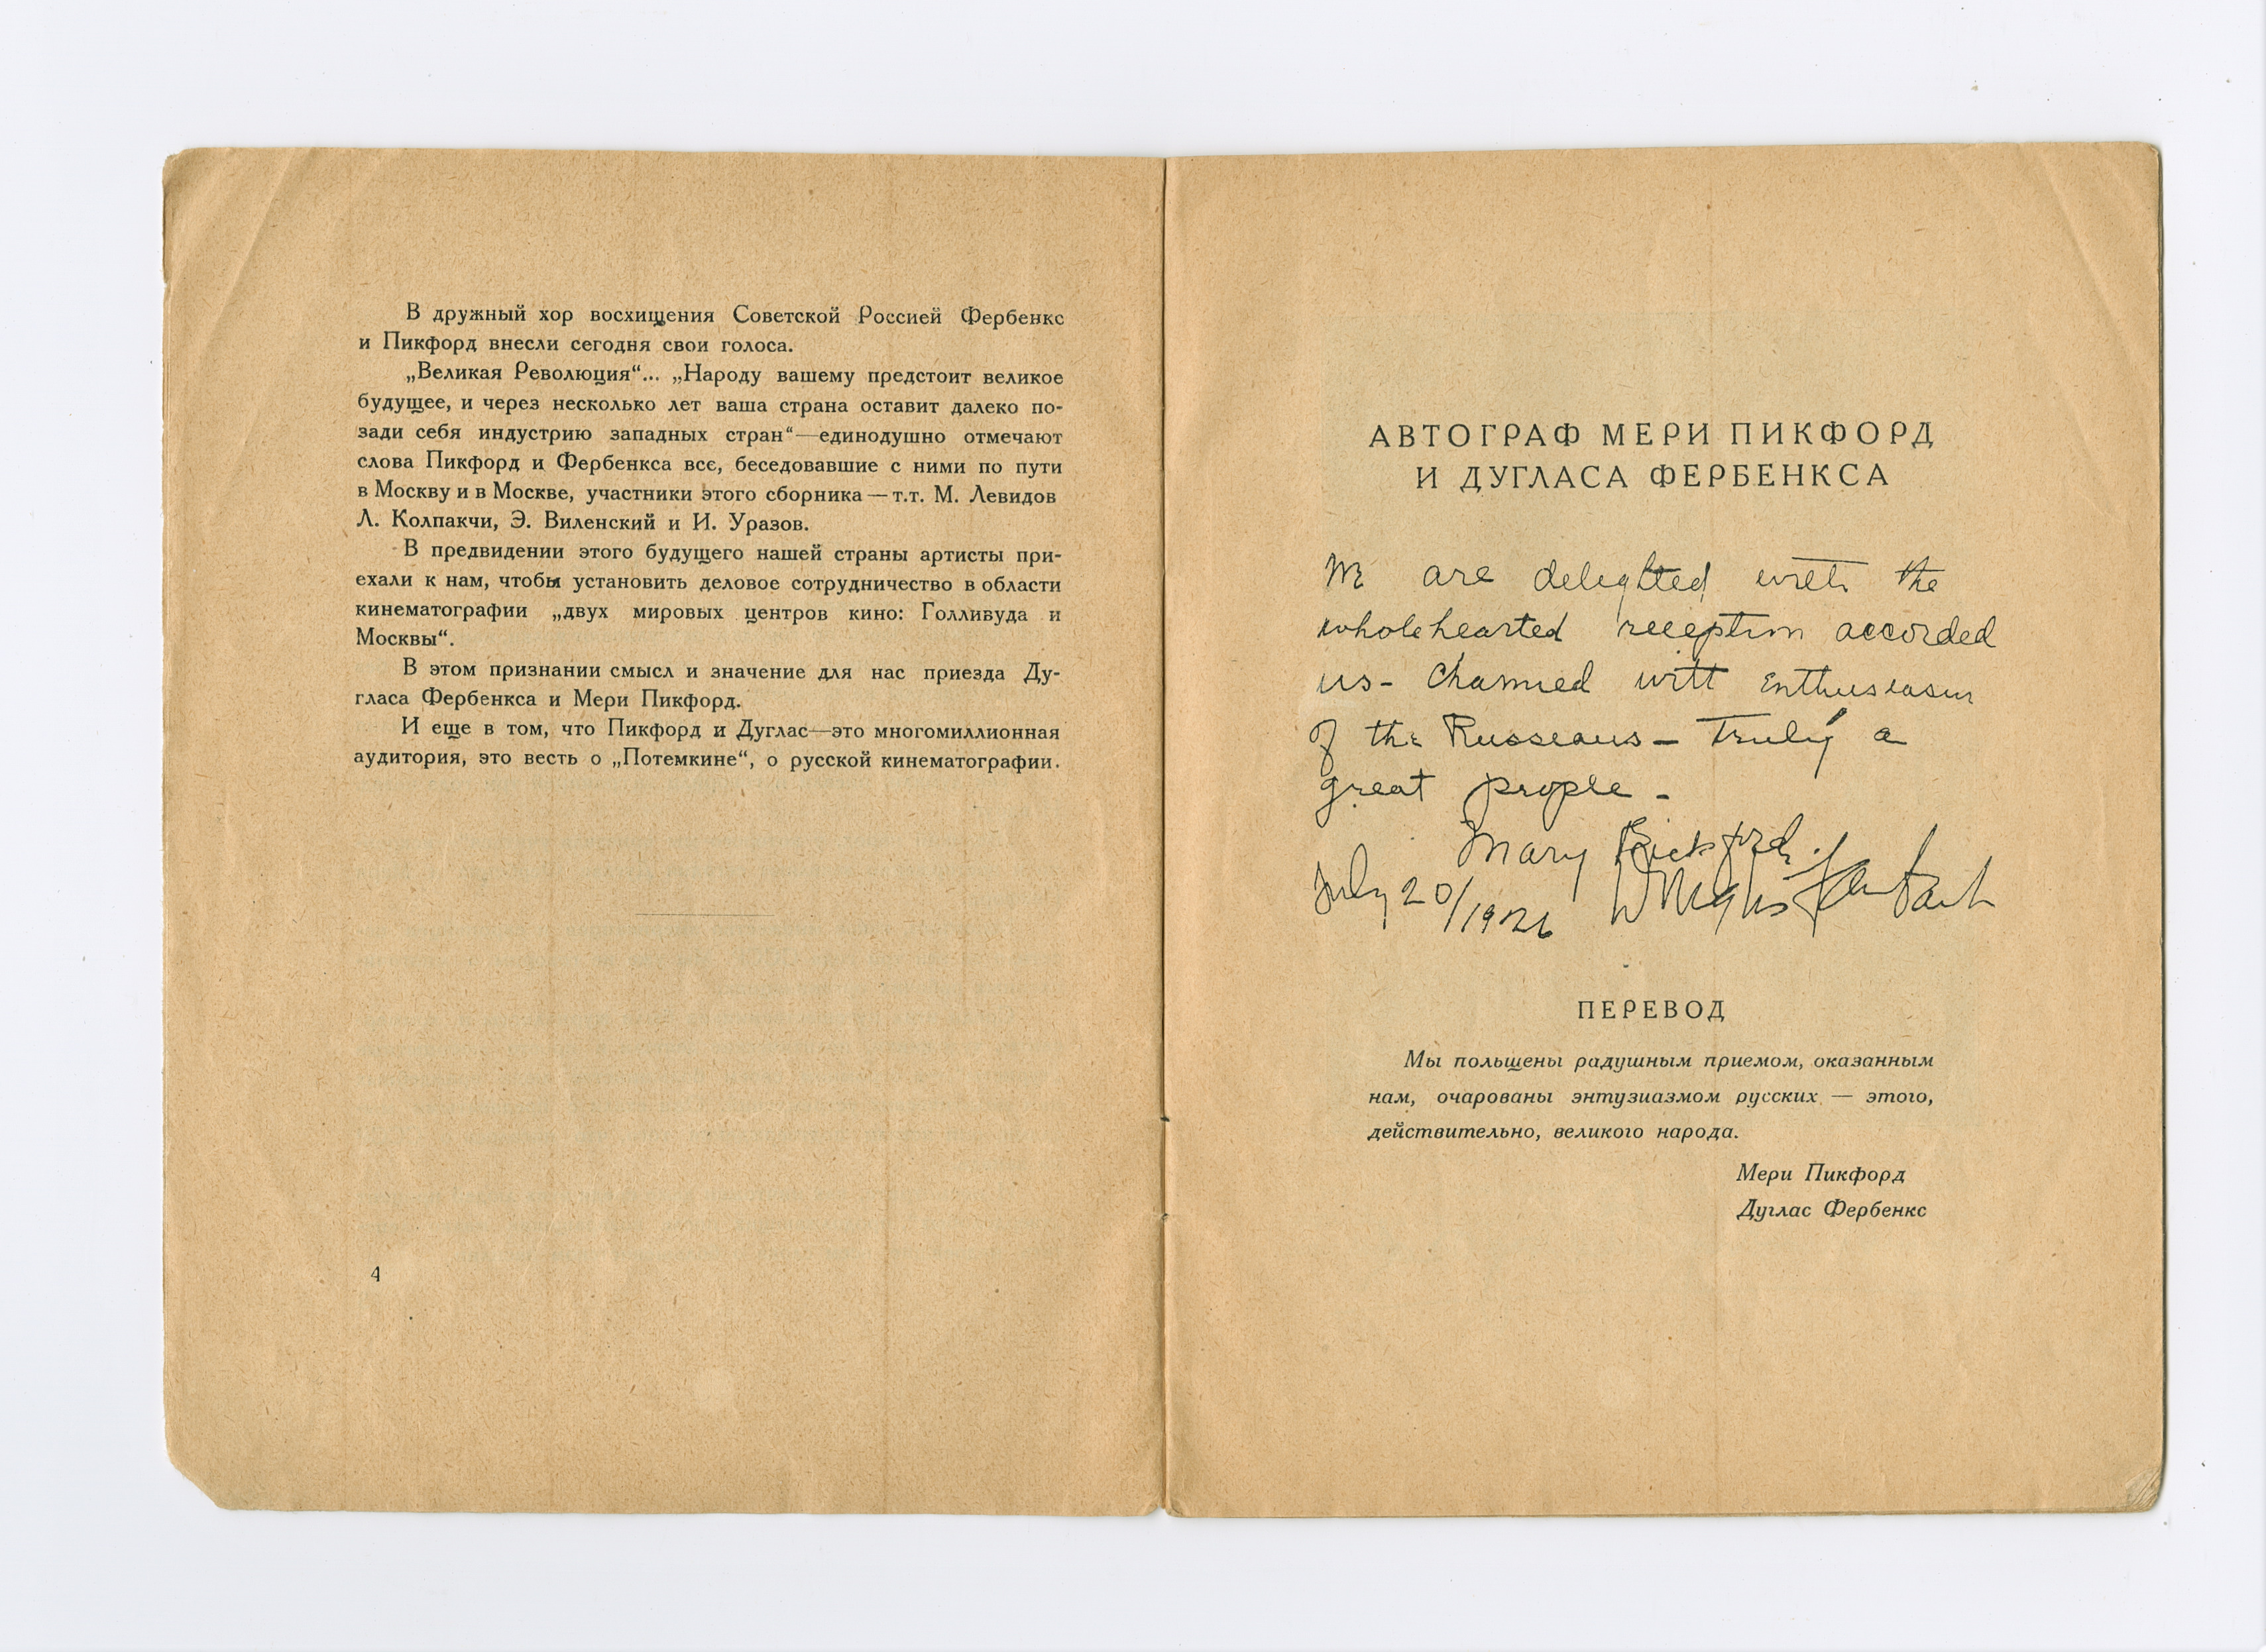 В дружный хор восхищения Советской Россией Фербенкс
и Пикфорд внесли сегодня свои голоса.
„Великая Революция“... „Народу вашему предстоит великое
будущее, и через несколько лет ваша страна оставит далеко по-
зади себя индустрию западных стран“—единодушно отмечают
слова Пикфорд и Фербенкса все, беседовавшие с ними по пути
в Москву и в Москве, участники этого сборника — т.т. М. Левидов
Л. Колпакчи, Э. Виленский и И. Уразов.
В предвидении этого будущего нашей страны артисты при-
ехали к нам, чтобы установить деловое сотрудничество в области
кинематографии „двух мировых центров кино: Голливуда и
Москвы“.
В этом признании смысл и значение для нас приезда Ду-
гласа Фербенкса и Мери Пикфорд.
И еще в том, что Пикфорд и Дуглас—это многомиллионная
аудитория, это весть о „Потемкине“, о русской кинематографии.
4
АВТОГРАФ МЕРИ ПИКФОРД
И ДУГЛАСА ФЕРБЕНКСА
We are delighted with the
wholehearted reception accorded
us- Charmed with Enthusiasm
of the Russians - Truly a
great people -
Mary Pickford.
July 20/1926 Douglas Fairbanks
ПЕРЕВОД
Мы польщены радушным приемом, оказанным
нам, очарованы энтузиазмом русских — этого,
действительно, великого народа.
Мери Пикфорд
Дуглас Фербенкс